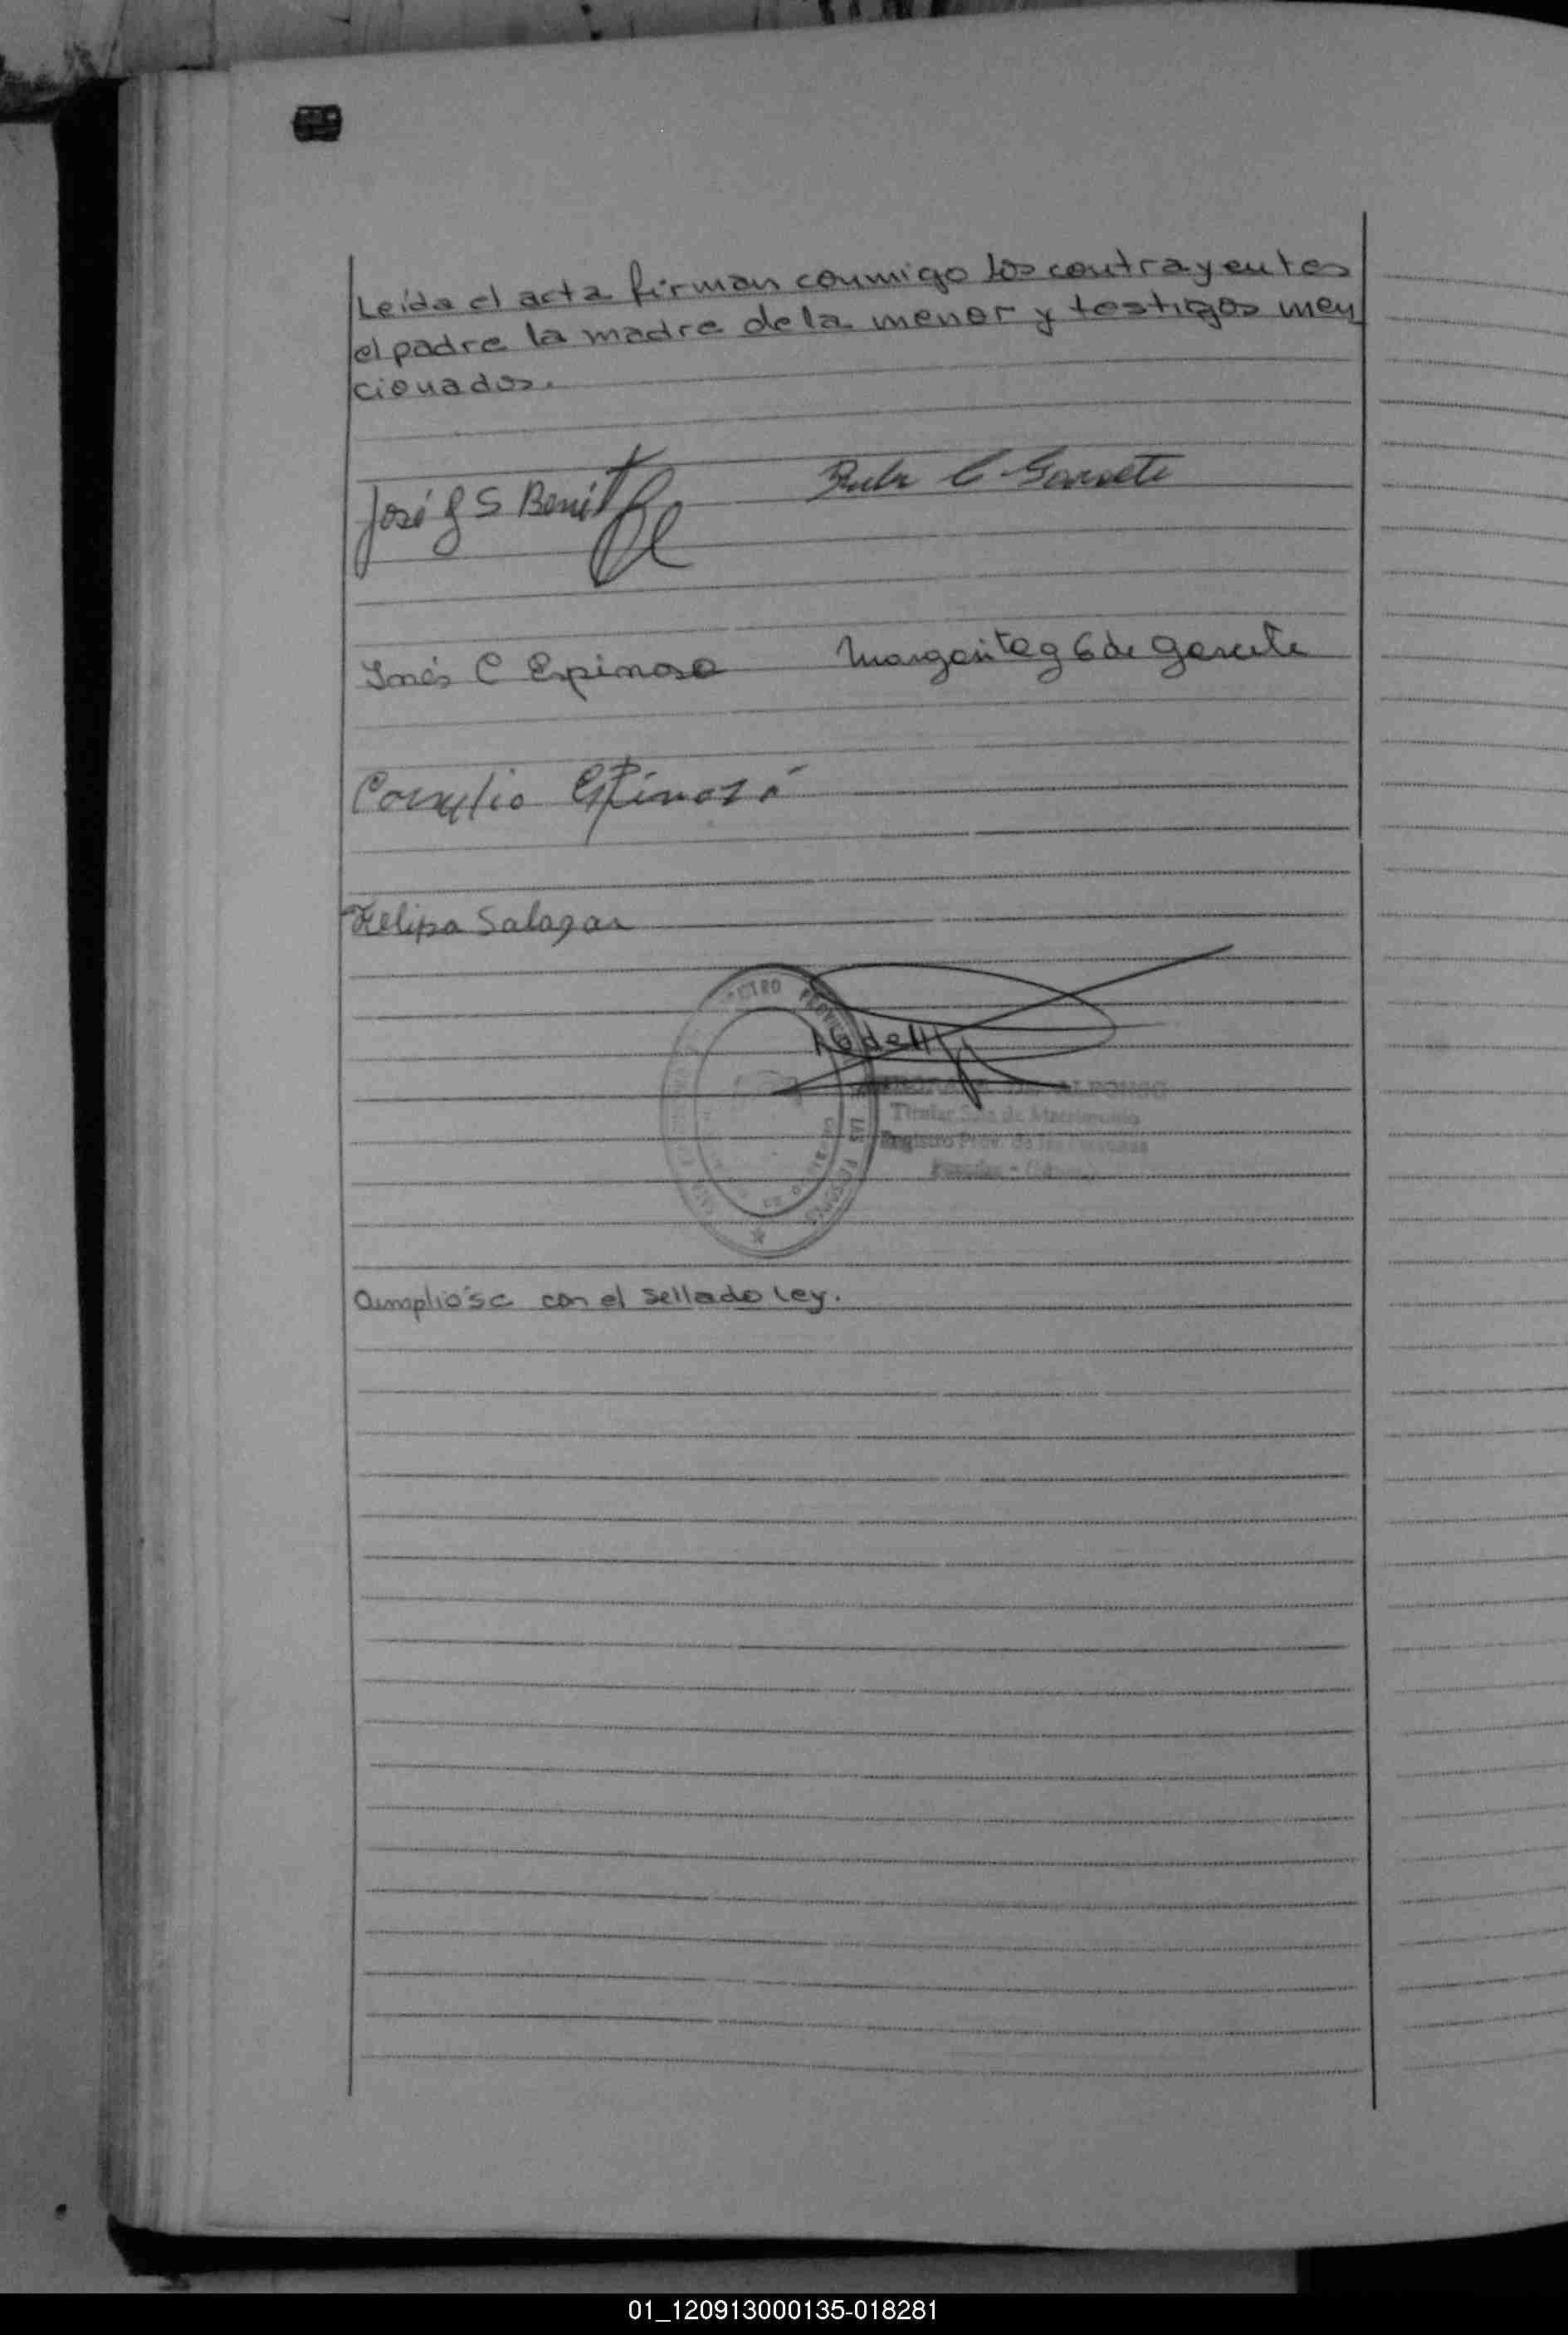 Leída el acta firman conmigo los contrayentes
el padre la madre de la menor y testigos men
cionados.
José S Benit
C Garcete
Inés C Espinosa
Margarita G de Garcete
Cornelio Espinosa
Felipa Salazar
DE ALFONSO
Titular Sala de Matrimonio
Registro Prov. de las Personas
LAS
Cumplióse con el sellado ley.
01_120913000135-018281